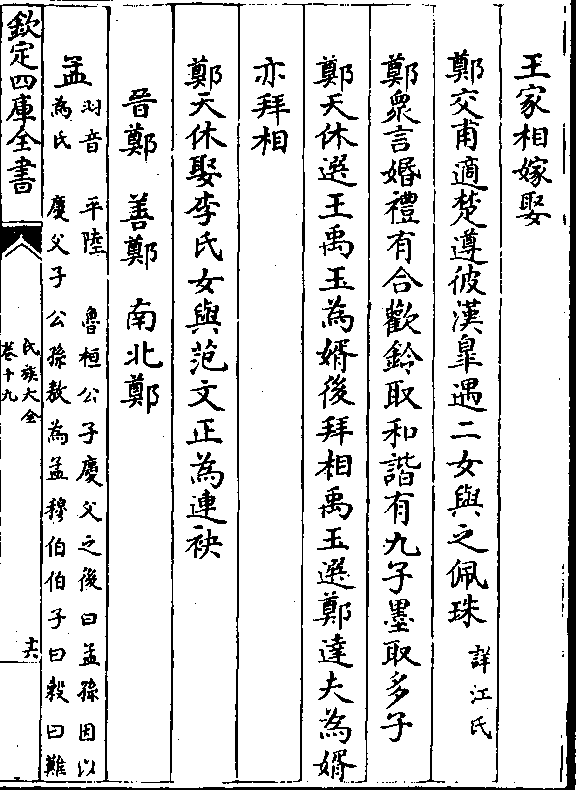 王家相嫁娶
鄭交甫適楚遵彼漢臯遇二女與之佩珠詳江氏
鄭衆言婚禮有合歡鈴取和諧有九子墨取多子
鄭天休選王禹玉為婿後拜相禹玉選鄭達夫為婿
亦拜相
鄭天休娶李氏女與范文正為連袂
晉鄭 善鄭 南北鄭
孟 羽音 平陸 魯桓公子慶父之後曰孟孫因以
為氏 慶父子公孫敖為孟穆伯伯子曰榖曰難
欽定四庫全書
氏族大全
卷十九
十六